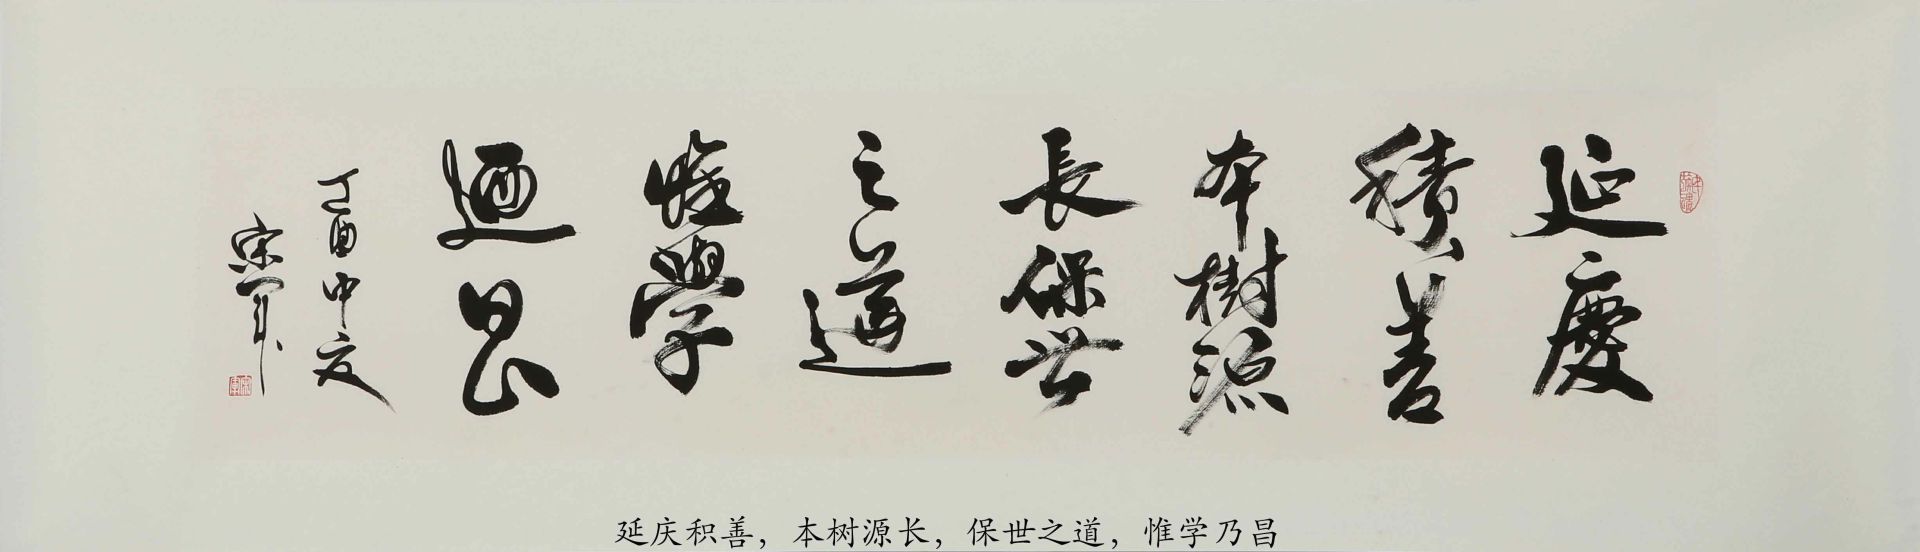 延慶
積善
本樹源
長保世
之道
惟學
迺昌
丁酉中文
宋軍
延庆积善，本树源长，保世之道，惟学乃昌